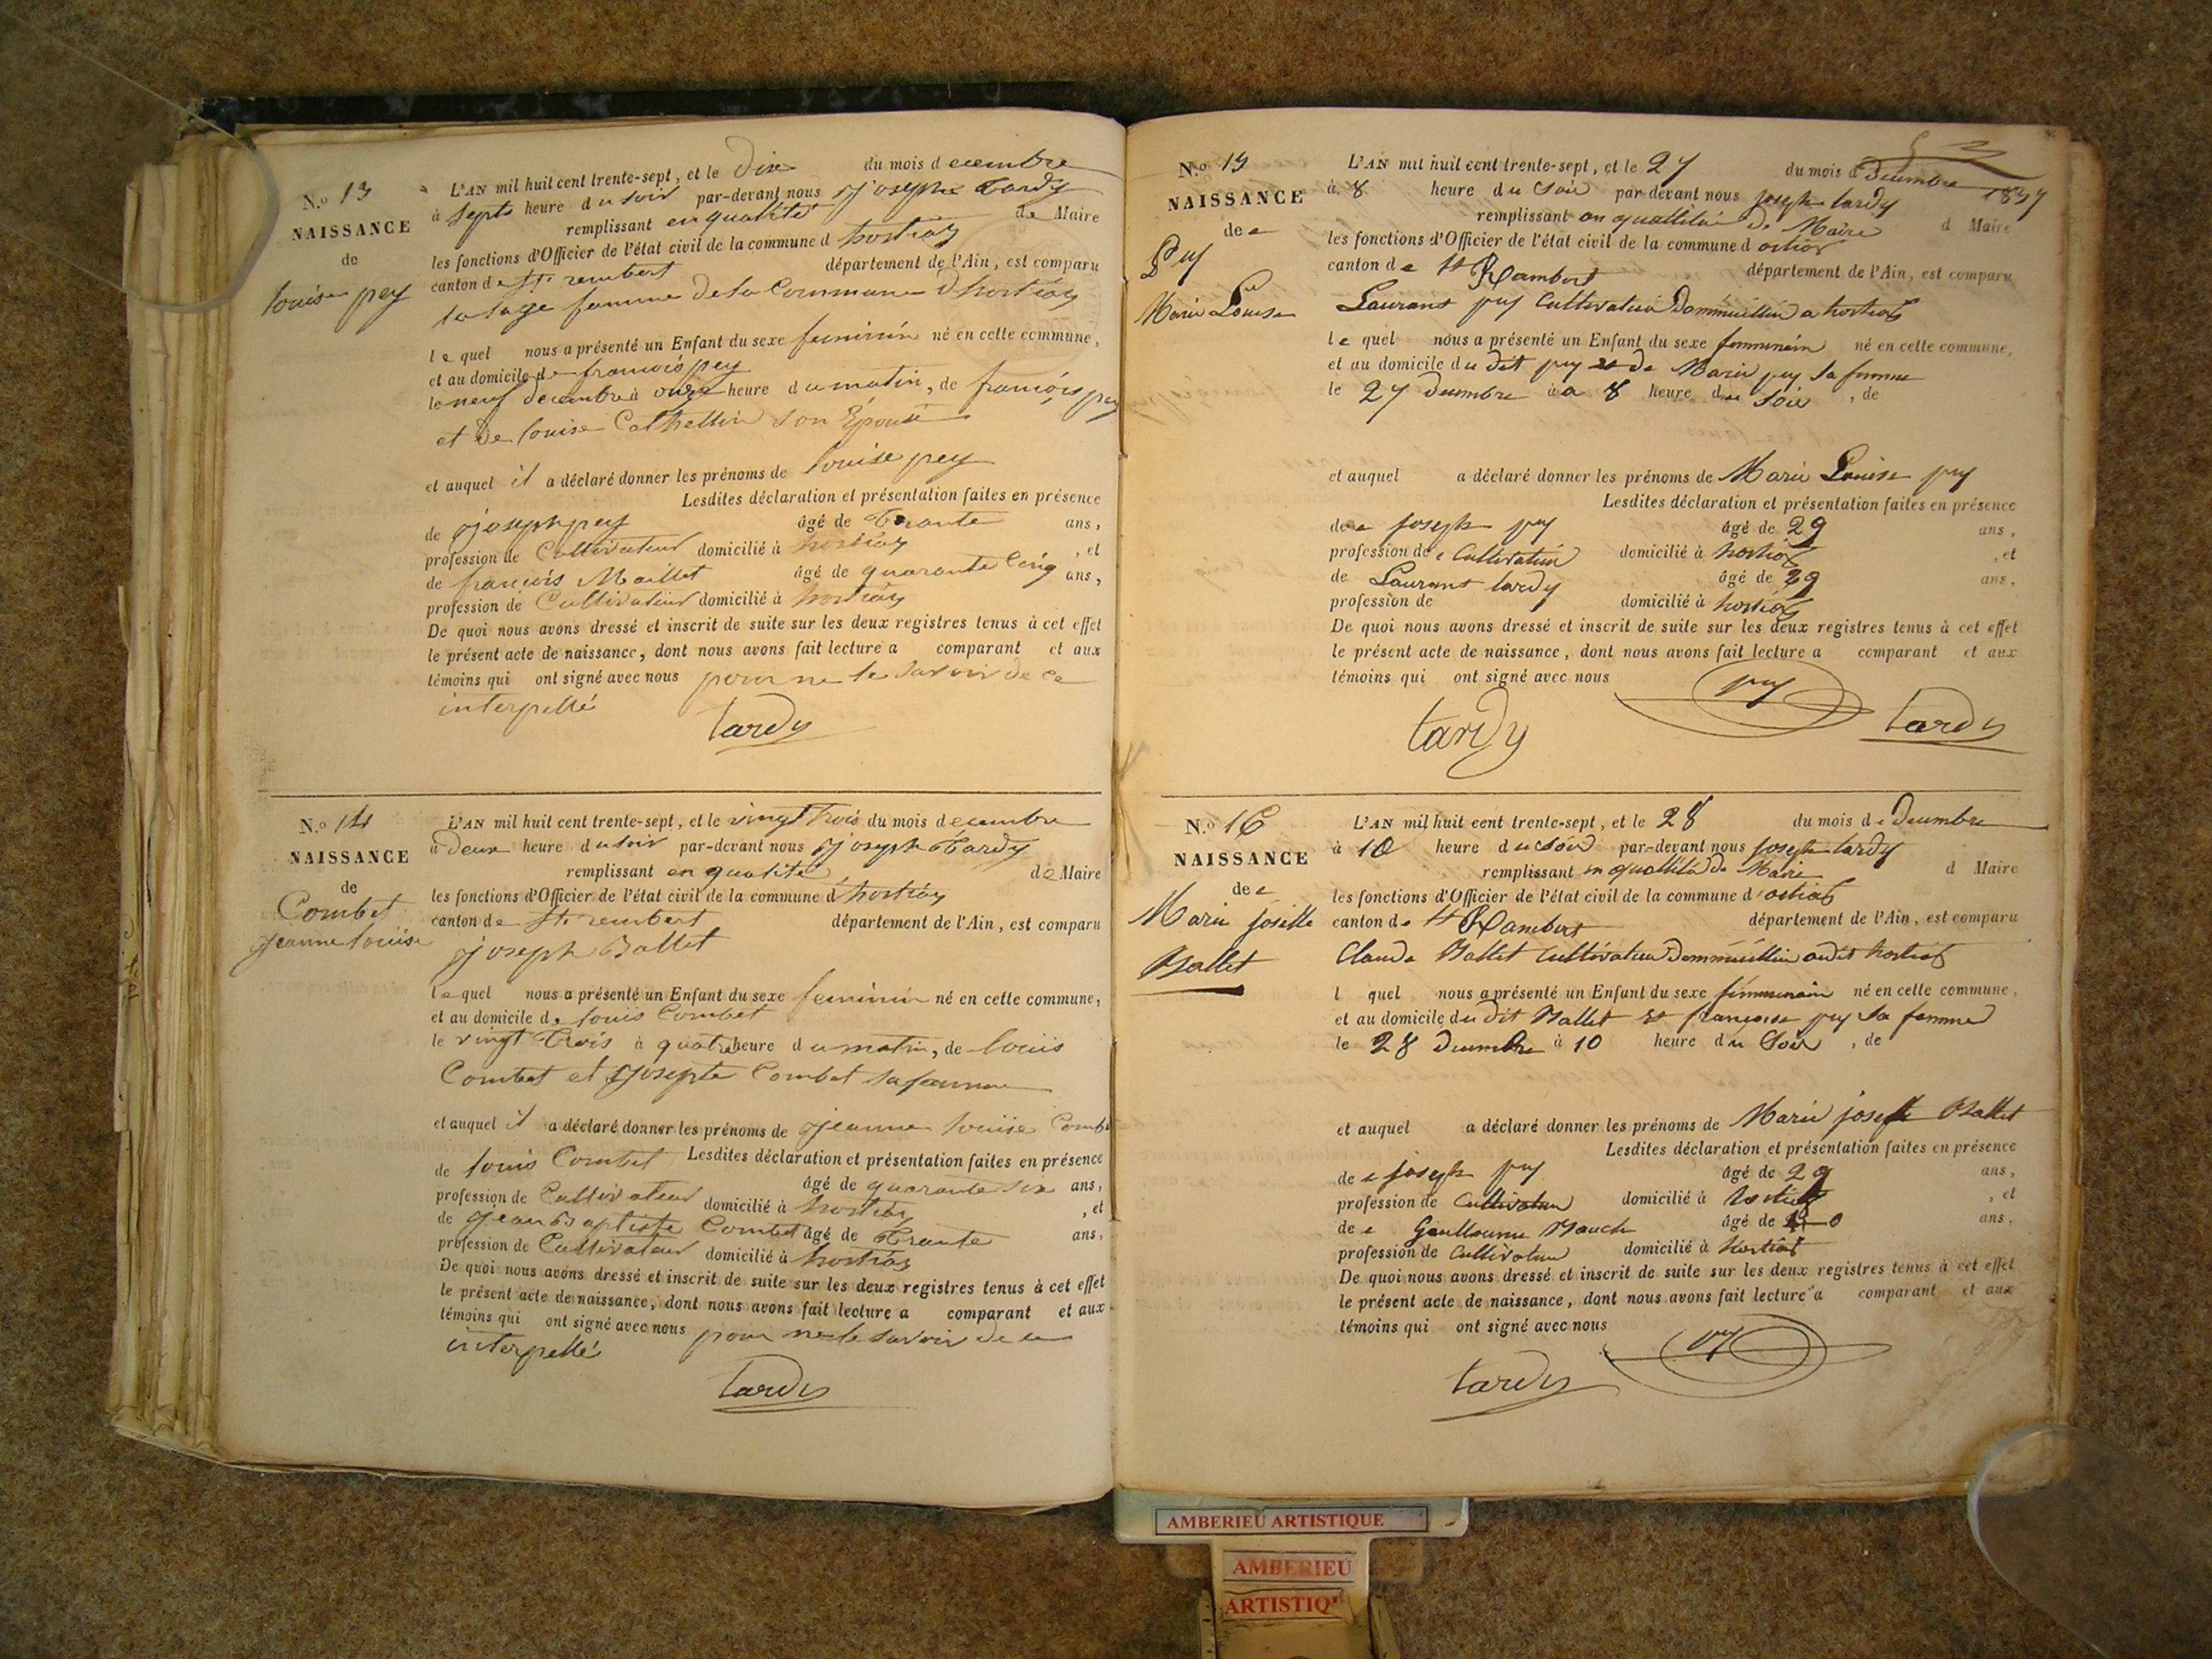 N.o 13
NAISSANCE
de
louise pey
L'AN mil huit cent trente-sept, et le dix du mois d ecembre
à septs heure d u soir par-devant nous joseph tardy
remplissant en qualité de Maire
les fonctions d'Officier de l'état civil de la commune d hostiaz
canton de St. rembert département de l'Ain, est comparu
la sage femme de la Commune d'hostiaz
le quel nous a présenté un Enfant du sexe feminin né en cette commune,
et au domicile de francois pey
le neuf decembre à onze heure du matin, de françois pey
et de louise Cathellin son Epouse
et auquel il a déclaré donner les prénoms de louise pey
Lesdites déclaration et présentation faites en présence
de joseph pey âgé de trante ans,
profession de Cultivateur domicilié à hostiaz , et
de francois Maillet âgé de quarante Cinq ans,
profession de Cultivateur domicilié à hostiaz
De quoi nous avons dressé et inscrit de suite sur les deux registres tenus à cet effet
le présent acte de naissance, dont nous avons fait lecture a comparant et aux
témoins qui ont signé avec nous pour ne le savoir de ce
interpellé
tardy
N.o 14
NAISSANCE
de
Combet
jeanne louise
L'AN mil huit cent trente-sept, et le vingt trois du mois d ecembre
à deux heure d u soir par-devant nous joseph tardy
remplissant en qualité de Maire
les fonctions d'Officier de l'état civil de la commune d'hostiaz
canton de St. rembert département de l'Ain, est comparu
joseph Ballet
le quel nous a présenté un Enfant du sexe feminin né en cette commune,
et au domicile de louis Combet
le vingt trois à quatre heure du matin, de louis
Combet et josepte Combet sa femme
et auquel il a déclaré donner les prénoms de jeanne louise Combe
Lesdites déclaration et présentation faites en présence
de louis Combet âgé de quarante six ans,
profession de Cultivateur domicilié à hostiaz , et
de jean Baptiste Combet âgé de trante ans,
profession de Cultivateur domicilié à hostiaz
De quoi nous avons dressé et inscrit de suite sur les deux registres tenus à cet effet
le présent acte de naissance, dont nous avons fait lecture a comparant et aux
témoins qui ont signé avec nous pour ne le savoir de ce
interpellé
tardy
N.o 15
NAISSANCE
de e
Puy
Marie Louise
L'AN mil huit cent trente-sept, et le 27 du mois d Decembre 1837
à 8 heure du Soir par-devant nous joseph tardy
remplissant en quallitée de Maire d Maire
les fonctions d'Officier de l'état civil de la commune d ostiaz
canton de St Rambert département de l'Ain, est comparu
Laurant puy Cultivateur Dommicillie a hostiaz
le quel nous a présenté un Enfant du sexe femminin né en cette commune,
et au domicile du dit puy et de Marie puy sa femme
le 27 Decembre à a 8 heure du Soir , de
et auquel a déclaré donner les prénoms de Marie Louise puy
Lesdites déclaration et présentation faites en présence
de e joseph puy âgé de 29 ans,
profession de Cultivateur domicilié à hostiaz , et
de Laurant tardy âgé de 29 ans,
profession de domicilié à hostiaz
De quoi nous avons dressé et inscrit de suite sur les deux registres tenus à cet effet
le présent acte de naissance, dont nous avons fait lecture a comparant et aux
témoins qui ont signé avec nous puy
tardy tardy
N.o 16
NAISSANCE
de e
Marie josette
Ballet
L'AN mil huit cent trente-sept, et le 28 du mois de Decembre
à 10 heure du Soir par-devant nous joseph tardy
remplissant en quallité de Maire d Maire
les fonctions d'Officier de l'état civil de la commune d'ostiaz
canton de St Rambert département de l'Ain, est comparu
Claude Ballet Cultivateur Dommicillie audit hostiaz
l quel nous a présenté un Enfant du sexe femminain né en cette commune,
et au domicile du dit Ballet et françoise puy sa femme
le 28 Decembre à 10 heure du Soir , de
et auquel a déclaré donner les prénoms de Marie josette Ballet
Lesdites déclaration et présentation faites en présence
de e joseph puy âgé de 29 ans,
profession de Cultivateur domicilié à hostiaz , et
de e âgé de ans,
profession de Cultivateur domicilié à hostiaz
De quoi nous avons dressé et inscrit de suite sur les deux registres tenus à cet effet
le présent acte de naissance, dont nous avons fait lecture a comparant et aux
témoins qui ont signé avec nous puy
tardy
AMBERIEU ARTISTIQUE
AMBERIEU
ARTISTIQ